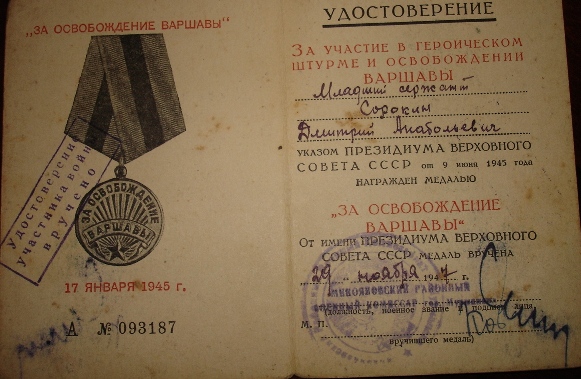 „ЗА ОСВОБОЖДЕНИЕ ВАРШАВЫ"
ЗА ОСВОБОЖДЕНИЕ
ВАРШАВЫ
Удостоверение
участника войны
вручено
17 ЯНВАРЯ 1945 г.
А № 093187
УДОСТОВЕРЕНИЕ
ЗА УЧАСТИЕ В ГЕРОИЧЕСКОМ
ШТУРМЕ И ОСВОБОЖДЕНИИ
ВАРШАВЫ
Младший сержант
Сорокин
Дмитрий Анатольевич
УКАЗОМ ПРЕЗИДИУМА ВЕРХОВНОГО
СОВЕТА СССР от 9 июня 1945 года
НАГРАЖДЕН МЕДАЛЬЮ
„ЗА ОСВОБОЖДЕНИЕ
ВАРШАВЫ"
От ИМЕНИ ПРЕЗИДИУМА ВЕРХОВНОГО
СОВЕТА СССР МЕДАЛЬ ВРУЧЕНА
29 ноября 1947 г.
РАЙОННЫЙ
ВОЕННЫЙ КОМИССАР
(должность, военное звание и подпись лица,
М. П.
вручившего медаль)